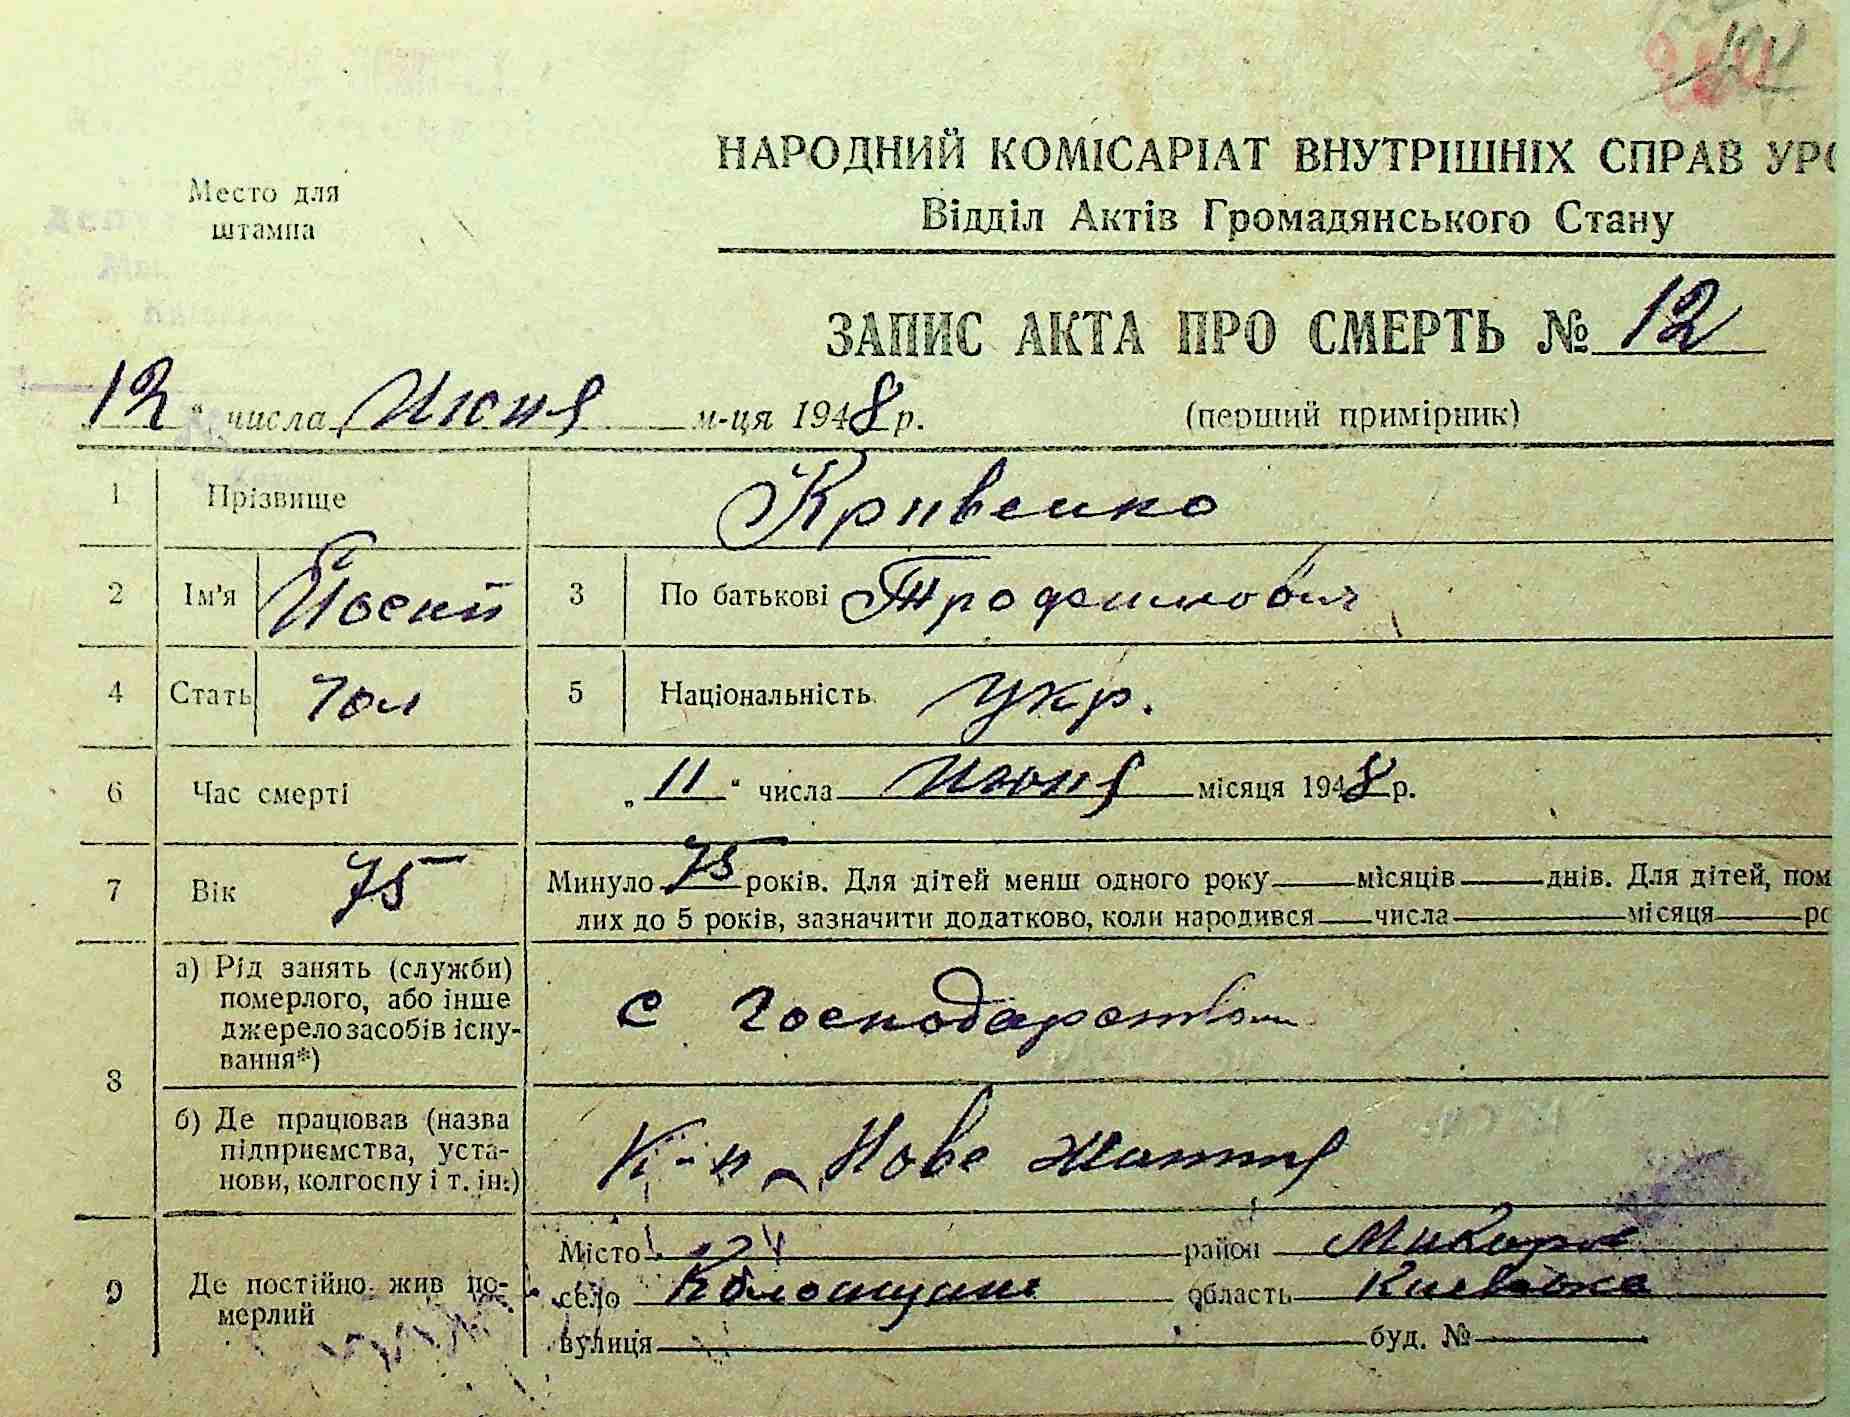 НАРОДНИЙ КОМІСАРІАТ ВНУТРІШНІХ СПРАВ УРС
Место для
штампа
Відділ Актів Громадянського Стану
ЗАПИС АКТА ПРО СМЕРТЬ № 12
12 " числа Июня м-ця 1948 р.
(перший примірник)
1 Прізвище Кривенко
2 Ім'я 3 По батькові Трофимович
4 Стать Чол 5 Національність укр.
6 Час смерті „ 11 " числа Июня місяця 1948 р.
7 Вік 75 Минуло 75 років. Для дітей менш одного року місяців днів. Для дітей, пом
лих до 5 років, зазначити додатково, коли народився числа місяця ро
8
а) Рід занять (служби)
померлого, або інше
джерело засобів існу-
вання*)
с Господарство
б) Де працював (назва
підприємства, уста-
нови, колгоспу і т. ін.)
К-п Нове життя
9 Де постійно жив по-
мерлий
Місто район
село область Киевська
вулиця буд. №